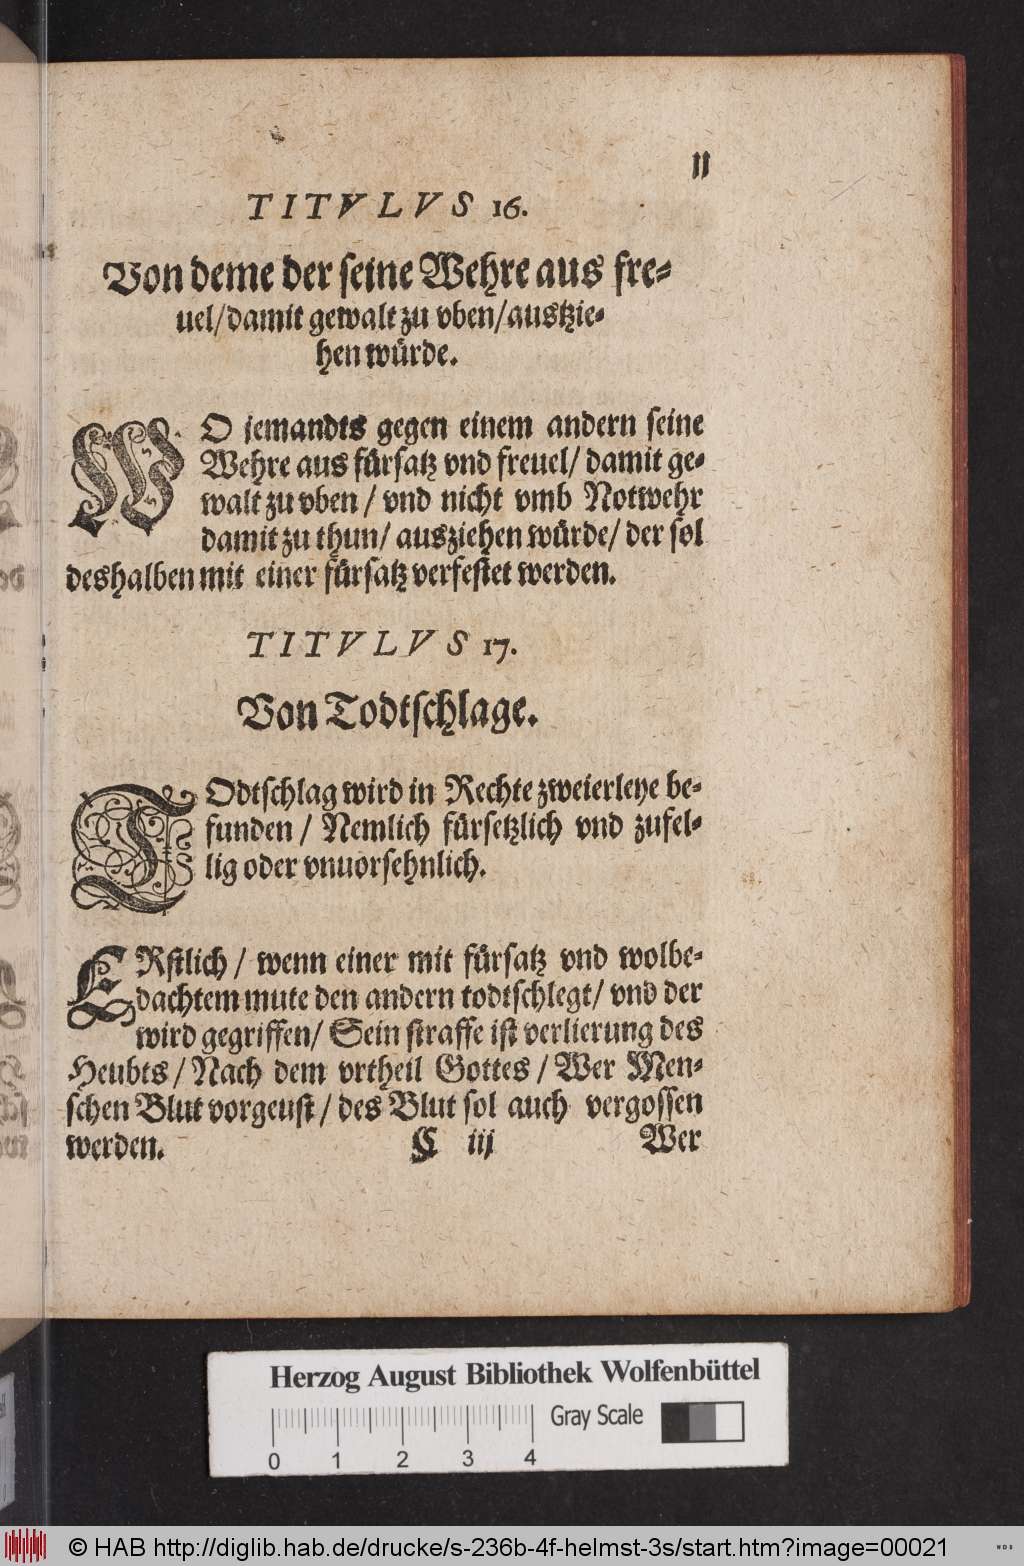 11
TITVLVS 16.
Von deme der seine Wehre aus fre-
uel/damit gewalt zu vben/austzie-
hen würde.
WO jemandts gegen einem andern seine
Wehre aus fürsatz vnd freuel/ damit ge-
walt zu vben / vnd nicht vmb Notwehr
damit zu thun/ ausziehen würde/ der sol
deshalben mit einer fürsatz verfestet werden.
TITVLVS 17.
Von Todtschlage.
TOdtschlag wird in Rechte zweierleye be-
funden / Nemlich fürsetzlich vnd zufel-
lig oder vnuorsehnlich.
ERstlich / wenn einer mit fürsatz vnd wolbe-
dachtem mute den andern todtschlegt/ vnd der
wird gegriffen/ Sein straffe ist verlierung des
Heubts / Nach dem vrtheil Gottes / Wer Men-
schen Blut vorgeust / des Blut sol auch vergossen
werden. C iij Wer
Herzog August Bibliothek Wolfenbüttel
Gray Scale
0 1 2 3 4
© HAB http://diglib.hab.de/drucke/s-236b-4f-helmst-3s/start.htm?image=00021
WDB